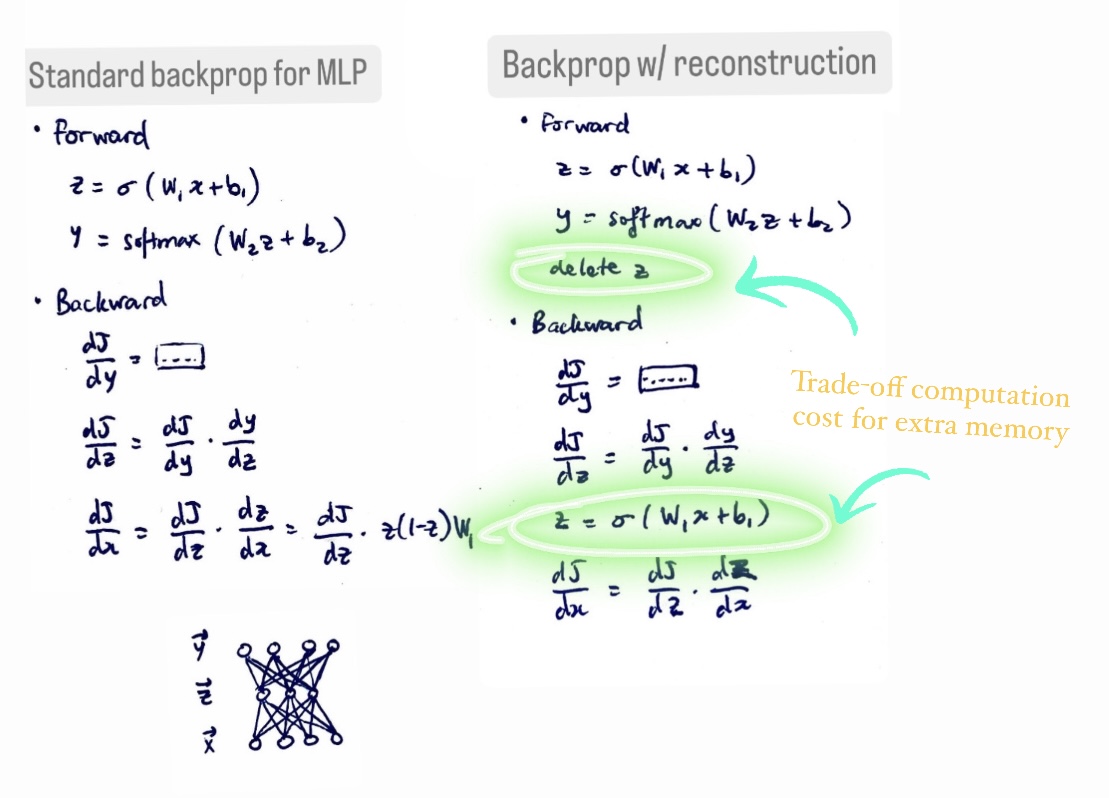 Standard backprop for MLP
• Forward
z = σ(W₁x+b₁)
y = softmax (W₂z + b₂)
• Backward
dJ/dy = [....]
dJ/dz = dJ/dy · dy/dz
dJ/dx = dJ/dz · dz/dx = dJ/dz · z(1-z)W₁
y⃗
z⃗
x⃗
Backprop w/ reconstruction
• Forward
z = σ(W₁x + b₁)
y = softmax (W₂z + b₂)
delete z
• Backward
dJ/dy = [.....]
dJ/dz = dJ/dy · dy/dz
z = σ(W₁x+b₁)
dJ/dx = dJ/dz · dz/dx
Trade-off computation
cost for extra memory